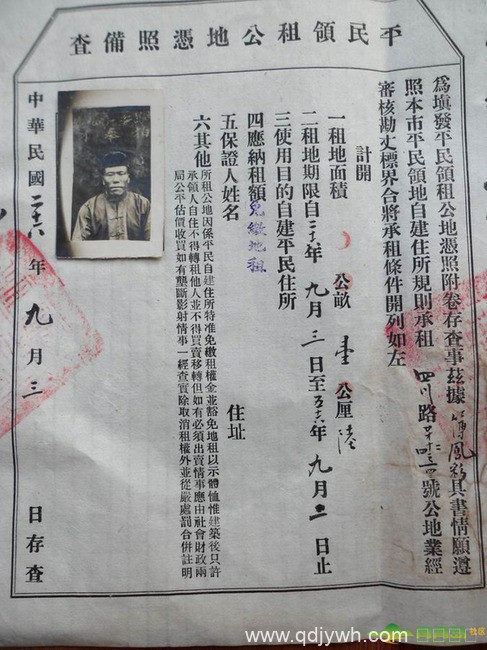 平民領租公地憑照備查
為填發平民領租公地憑照附卷存查事茲據 鳳 具書情願遵
照本市平民領地自建住所規則承租 四川路 號公地業經
審核勘丈標界合將承租條件開列如左
計開
一租地面積 公畝 壹 公厘 陸
二租地期限自 年 九 月 三 日至 年 九 月 二 日止
三使用目的自建平民住所
四應納租額 免繳地租
五保證人姓名 住址
六其他 所租公地因係平民自建住所特准免繳租權金並豁免地租以示體恤惟建築後只許
承領人自住不得轉租他人並不得買賣移轉但如有必須出賣情事應由社會財政兩
局公平估價收買如有壟斷影射情事一經查實除取消租權外並從嚴處罰合併註明
中華民國 二十六 年 九 月 三 日存查
www.qdjywh.com
社区